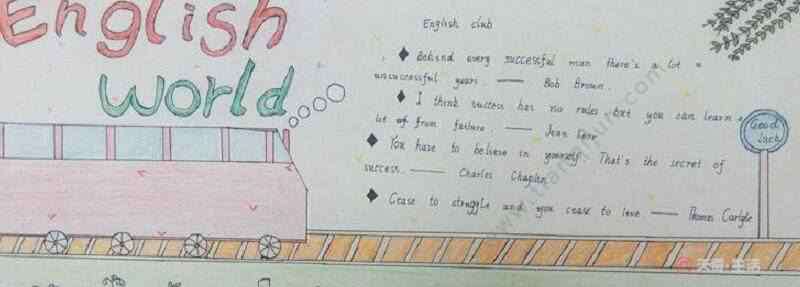 English
World
English club
◆ Behind every successful man there's a lot
unsuccessful years. —— Bob Brown.
◆ I think success has no rules but you can learn a
lot of from failure —— Jean Kerr
◆ You have to believe in yourself. That's the secret of
success. —— Charles Chaplin
◆ Cease to struggle and you cease to love —— Thomas Carlyle
Good
luck
www.tianqijun.com
天奇·生活